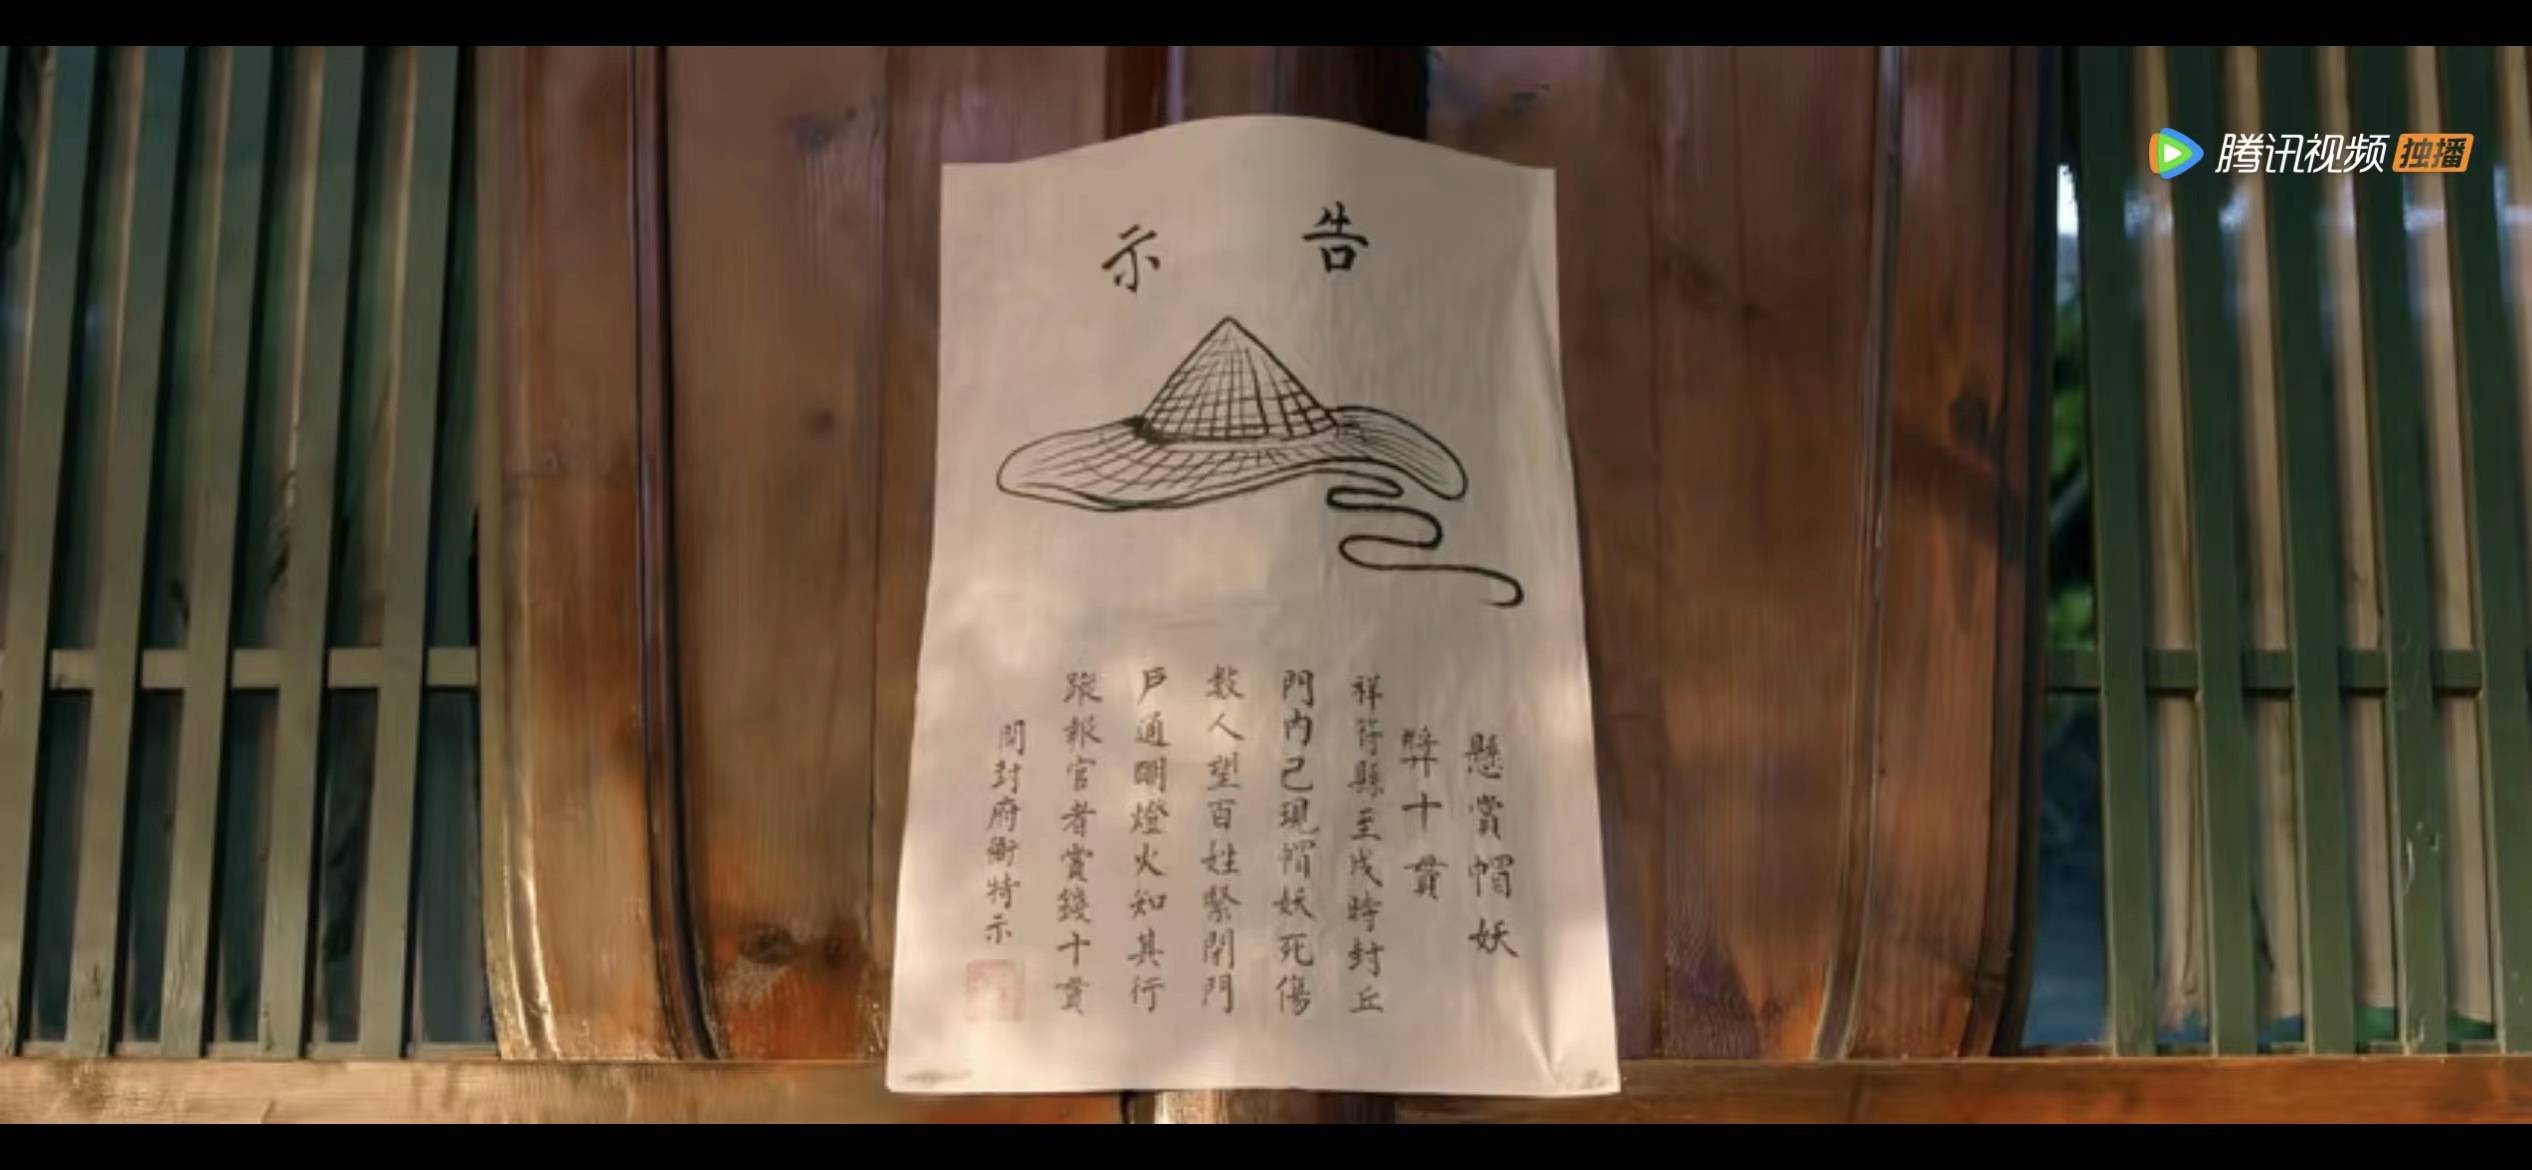 告示
懸賞帽妖
弊十貫
祥符縣至戌時封丘
門内己現帽妖死傷
數人望百姓緊閉門
戶通明燈火知其行
蹤報官者賞錢十貫
開封府衙特示
腾讯视频 独播